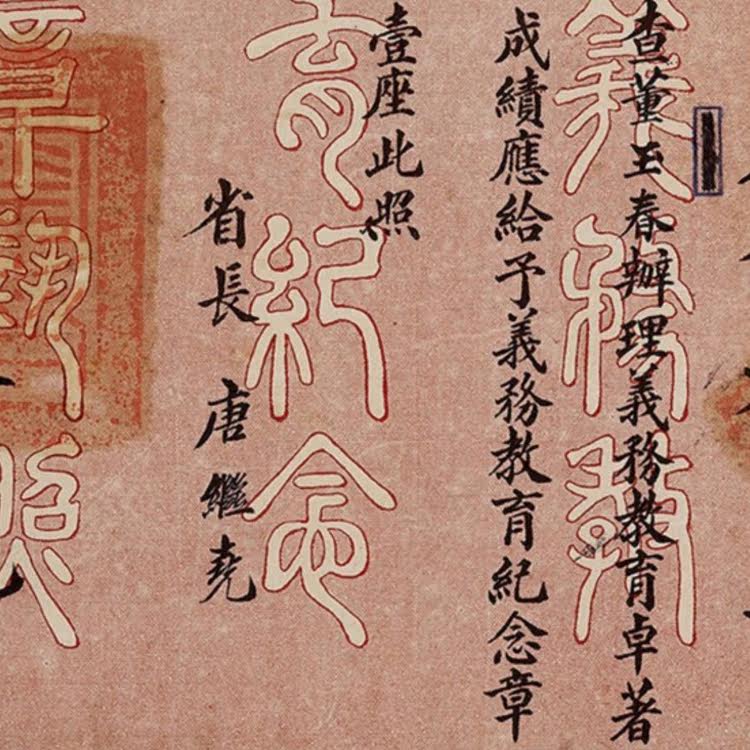 查董玉春辦理義務教育卓著
成績應給予義務教育紀念章
壹座此照
省長 唐繼堯
義務教
育紀念
章執照